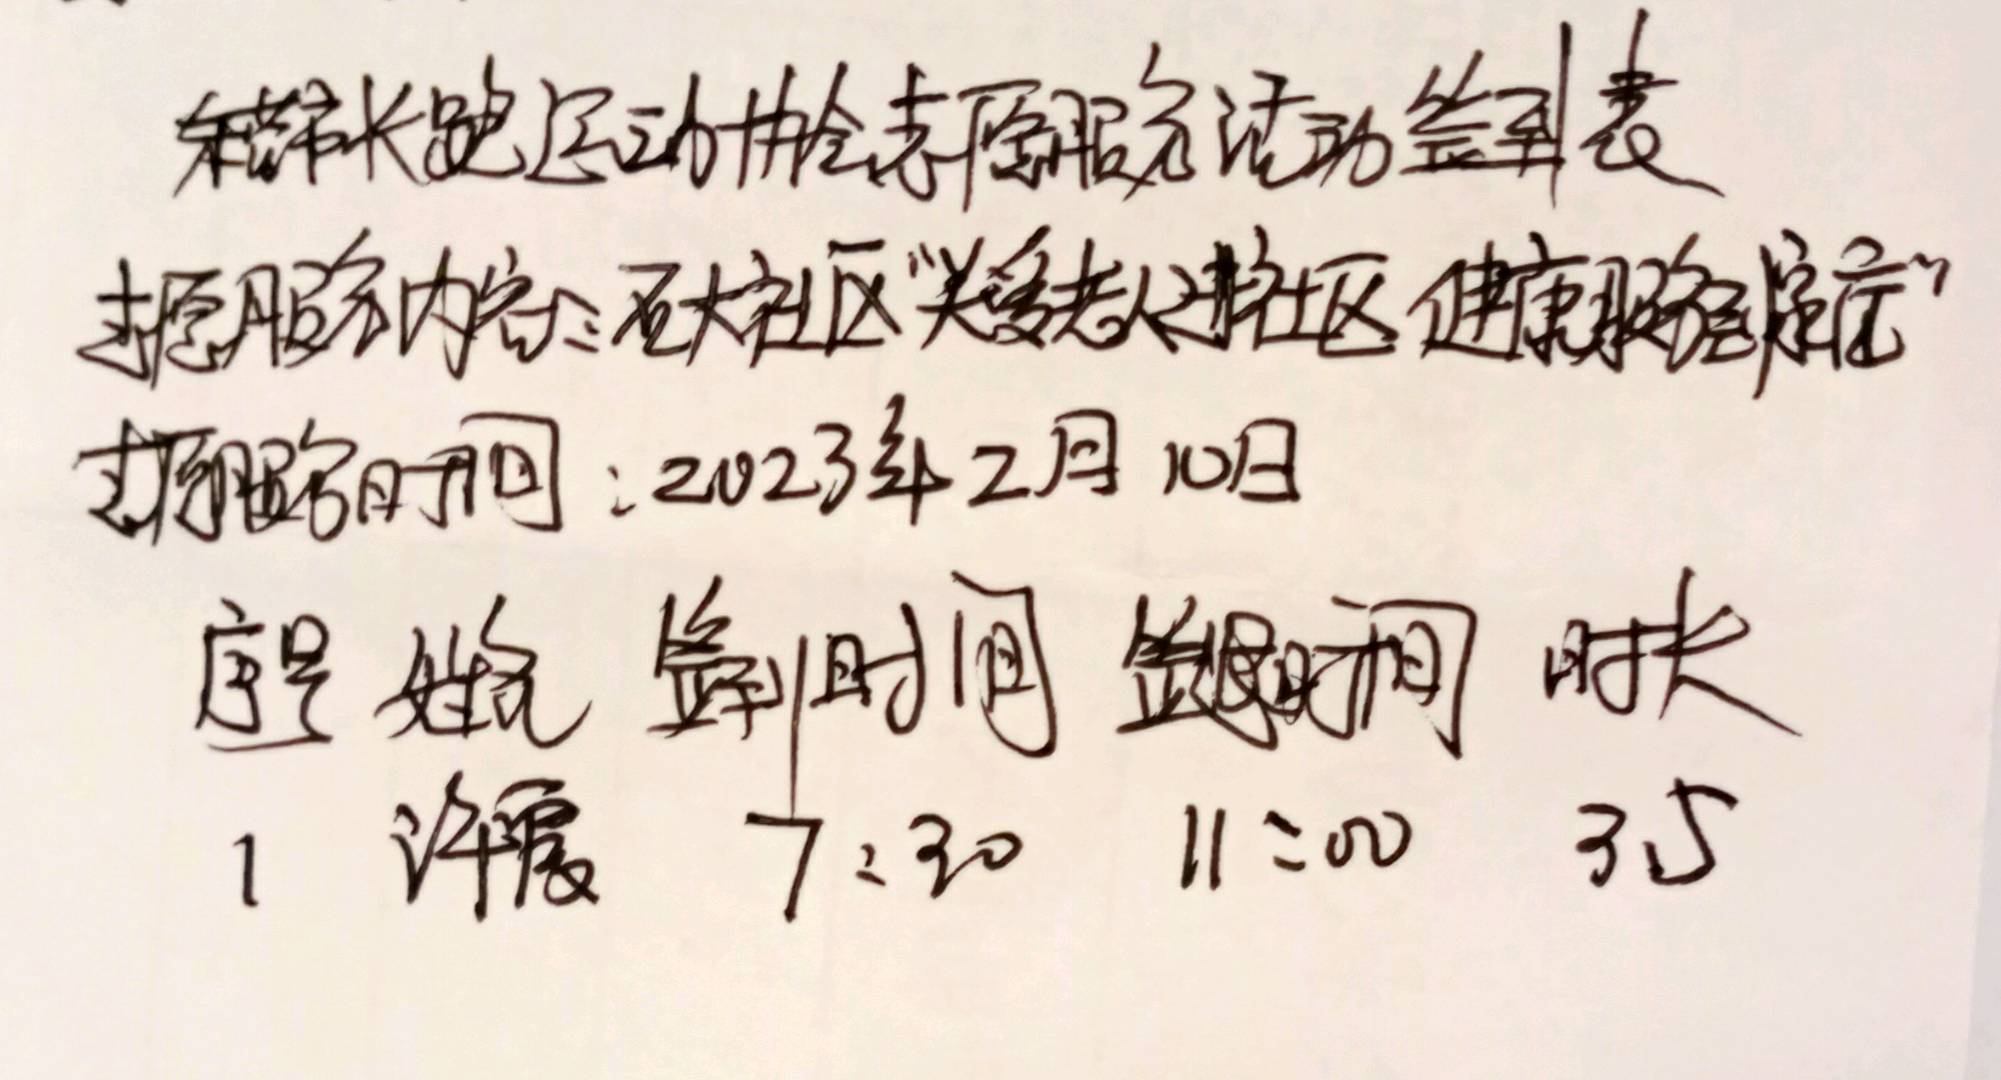 长跑运动协会志愿服务活动签到表
志愿服务内容:石大社区“关爱老人进社区 健康服务
志愿服务时间:2023年2月10日
序号 姓名 签到时间 签退时间 时长
1 许震 7:30 11:00 3.5